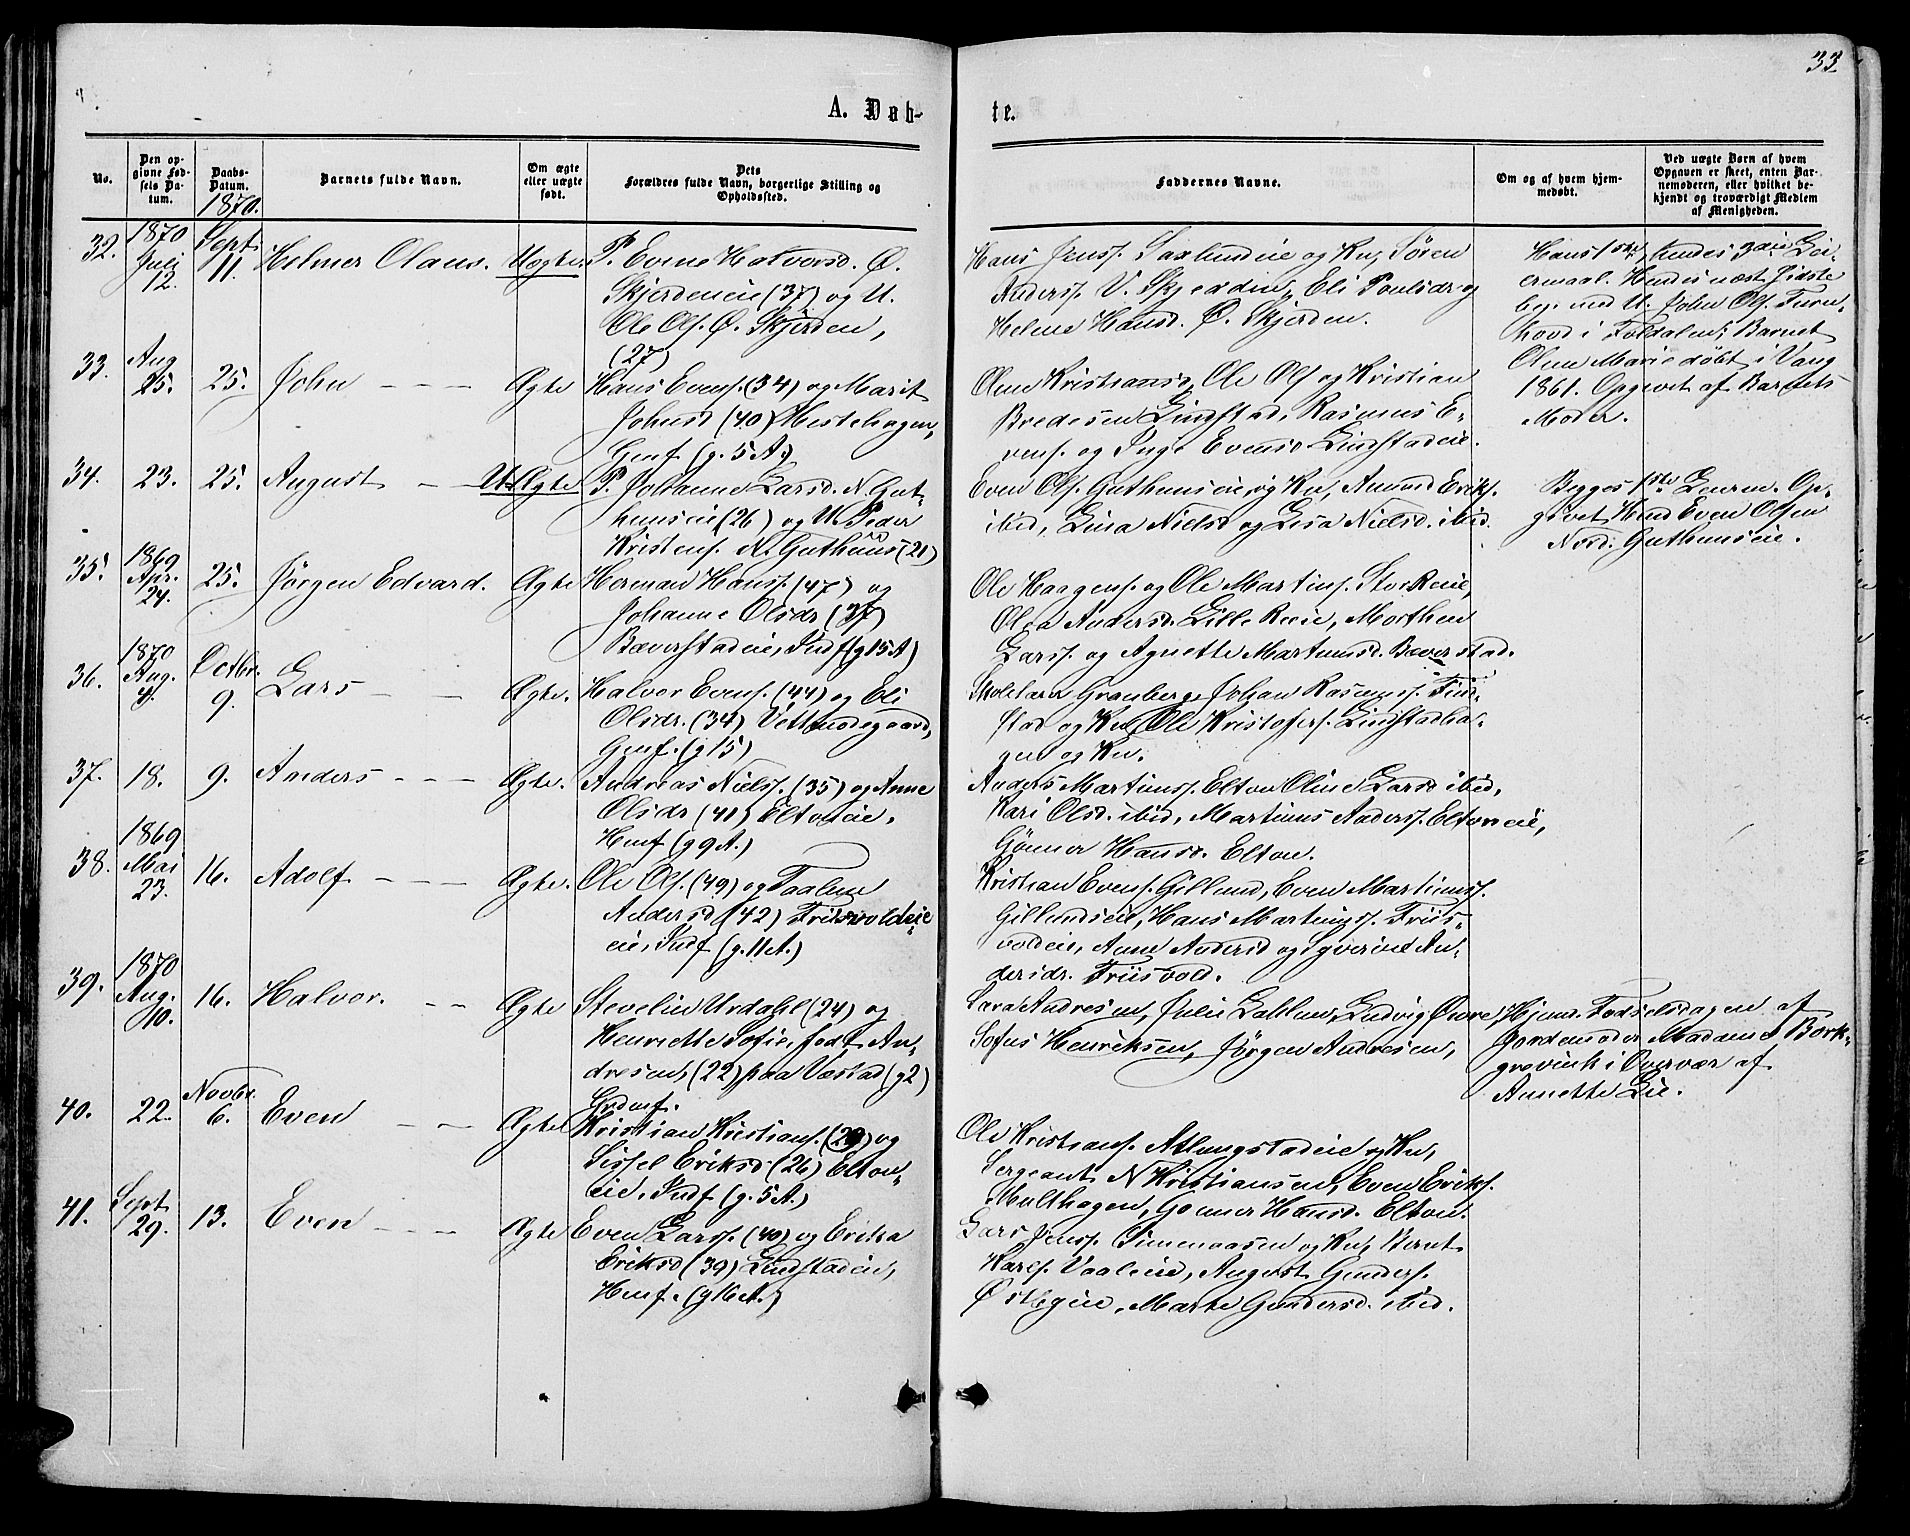 33
A. Døb-
te.
No.
Den op-
givne Fød-
sels Da-
tum.
Daabs-
Datum.
1870.
Barnets fulde Navn.
Om ægte
eller uægte
født.
Dets
Forældres fulde Navn, borgerlige Stilling og
Opholdssted.
Faddernes Navne.
Om og af hvem hjem-
medøbt.
Ved uægte Børn af hvem
Opgaven er skeet, enten Bar-
nemoderen, eller hvilket be-
kjendt og troværdigt Medlem
af Menigheden.
32.
1870
Juli
12.
Sept.
11.
Helmer Olaus.
Uægte.
P. Evine Halvorsd. Ø.
Skjerdeneie (37) og U.
Ole Ols. Ø. Skjerden,
(27)
Hans Jens. Saxlundeie og Ku, Søren
Anders. V. Skjerden, Eli Poulsdr og
Helene Hansd. Ø. Skjerden.
Hans 1ste, hendes 3die Lei-
ermaal. Hendes næst sidste
beg. med U. John Ols. Furu-
hovd i Foldalen; Barnet
Oline Marie døbt i Vang
1861. Opgivet af Barnets
Moder.
33.
Aug
25.
25.
John
Ægte
Hans Evens. (34) og Marit
Johnsd (40) Hestehagen,
Genf (g. 5 A)
Oline Kristiansd, Ole Ols og Kristian
Bredesen Lindstad, Rasmus E-
vens. og Inge Evensd Lindstadeie.
34.
23.
25.
August
U. Ægte
P. Johanne Larsd. N. Gut-
hunseie (26) og U. Peder
Kristens. N. Guthuus (21)
Even Ols. Guthunseie og Ku, Amund Eriks.
ibid, Lina Nielsd og Lisa Nielsd. ibid.
Begges 1ste Leierm. Op-
givet Hmd Even Olsen
Nord. Guthunseie.
35.
1869
Apr.
24.
25.
Jørgen Edvard.
Ægte
Herman Hans. (47) og
Johanne Olsdr (37)
Bæverstadeie, Indf (g 15 A)
Ole Haagens. og Ole Martins. Stor Reeie,
Olea Andersd. Lille Reeie, Morthen
Lars. og Agnette Martinusd. Bæverstad.
36.
1870
Aug.
4.
Octbr.
9.
Lars
Ægte.
Halvor Evens. (44) og Eli
Olsdr. (34)
Genf. (g 15)
Skolelærer Granberg, Johan Rasmus. Find-
stad og Ku, Ole Kristofers. Lindstadha-
gen og Ku.
37.
18.
9.
Anders
Ægte.
Andreas Niels. (35) og Anne
Olsdr (41) Eltoneie.
Henf (g 9 A.)
Anders Martinus. Elton Oline Larsd ibid,
Kari Olsd. ibid, Martinus Anders. Eltoneie,
Gønner Hansd. Elton.
38.
1869
Mai
23.
16.
Adolf
Ægte.
Ole Ols. (49) og Taaline
Andersd (42) Friisvoldeie
eie, Indf (g. 11 A.)
Kristian Evens. Gillund, Even Martinus.
Gillundseie, Hans Martinus. Friis-
voldeie, Anne Andersd og Syverine An-
dersdr. Friisvold.
39.
1870
Aug.
10.
16.
Halvor.
Ægte
Stevelin Urdahl (24) og
Henriette Sofie, født An-
dresen, (22) paa Væstad (g 2)
Grdmf.
Lara Andresen, Julie Lablum, Ludvig Øvre,
Sofus Henriksen, Jørgen Andresen,
Hjem. Fødselsdagen af
Jordemoder Madame Bork-
grevink i Overvær af
Annette Lie.
40.
22.
Novbr.
6.
Even
Ægte
Kristian Kristians. (29) og
Sissel Eriksd (26) Elton-
eie, Indf (g. 5 A.)
Ole Kristians. Atlungstadeie og Ku,
Sergeant N Kristiansen, Even Eriks.
Multhagen, Gønner Hansd. Elton.
41.
Sept
29.
13.
Even
Ægte
Even Lars. (40) og Erika
Eriksd (39) Lindstadeie,
Henf. (g 16 A.)
Lars Jens. Simenaasen og Ku, Bernt
Karls. Vaaleeie, August Gunders.
Østbyeie, Marte Gundersd. ibid.